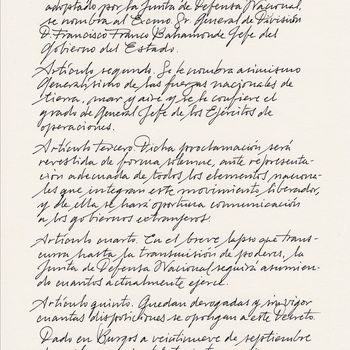 adoptado por la Junta de Defensa Nacional,
se nombra al Excmo Sr. General de División
D. Francisco Franco Bahamonde Jefe del
Gobierno del Estado.
Artículo segundo. Se le nombra asimismo
Generalísimo de las fuerzas nacionales de
tierra, mar y aire y se le confiere el
grado de General Jefe de los Ejércitos de
operaciones.
Artículo tercero Dicha proclamación será
revestida de forma solemne, ante representa-
ción adecuada de todos los elementos naciona-
les que integran este movimiento liberador,
y de ella se hará oportuna comunicación
a los gobiernos extranjeros
Artículo cuarto. En el breve lapso que trans-
curra hasta la transmisión de poderes, la
Junta de Defensa Nacional seguirá asumien-
do cuantos actualmente ejerce.
Artículo quinto. Quedan derogadas y sin vigor
cuantas disposiciones se opongan a este decreto.
Dado en Burgos a veintinueve de septiembre